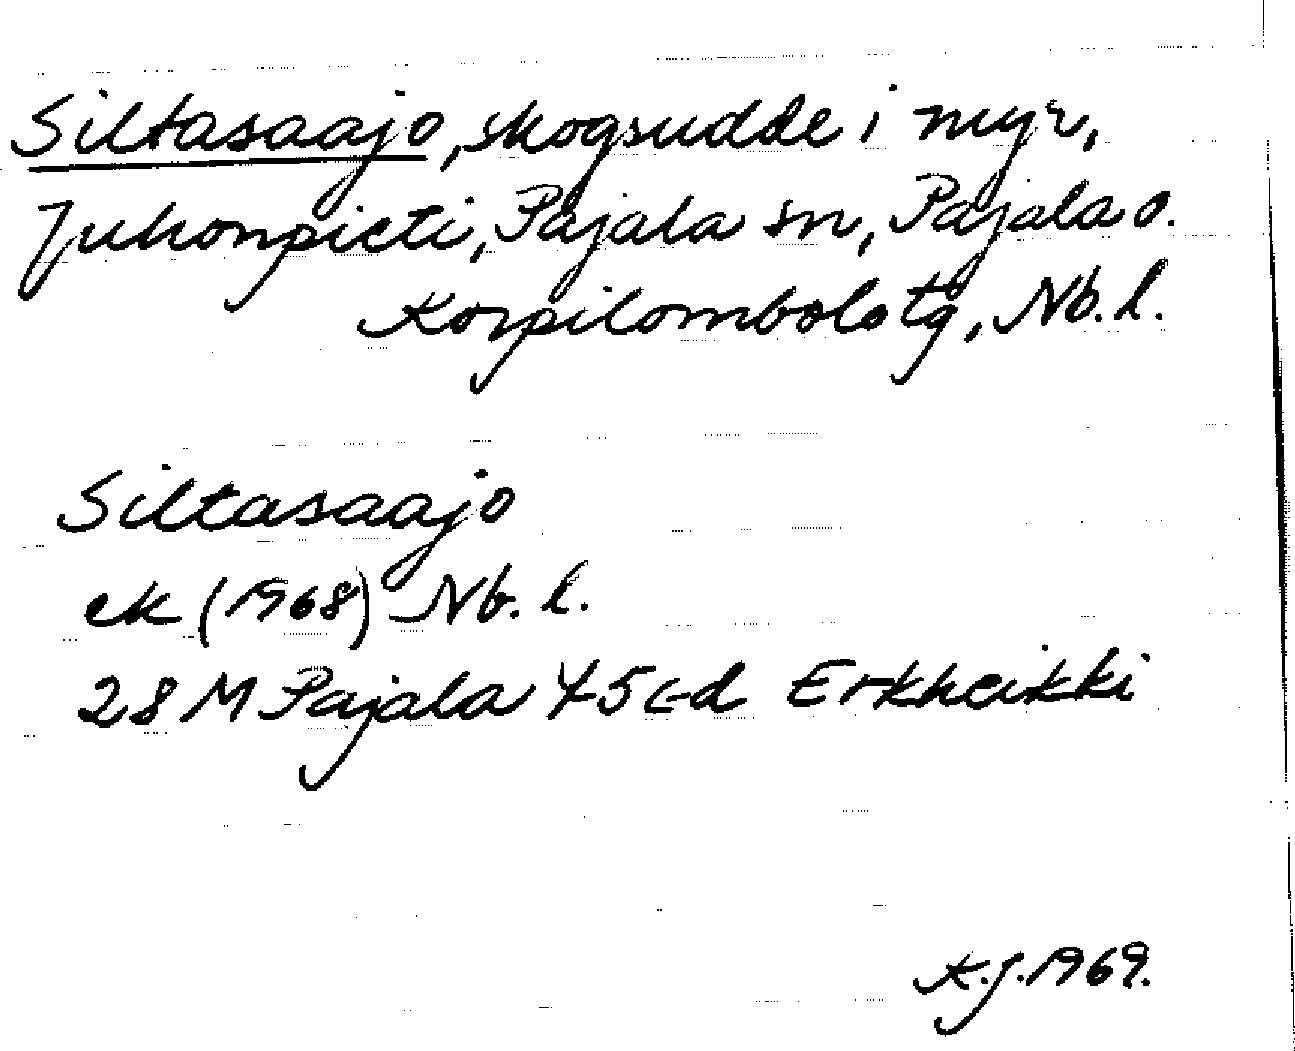 Siltasaajo, skogsudde i myr,
Juhonpieti, Pajala sn, Pajala o.
Korpilombolo tg, Nb. l.
Siltasaajo
ek (1968) Nb. l.
28 M Pajala 45 c-d Erkheikki
K.J. 1969.